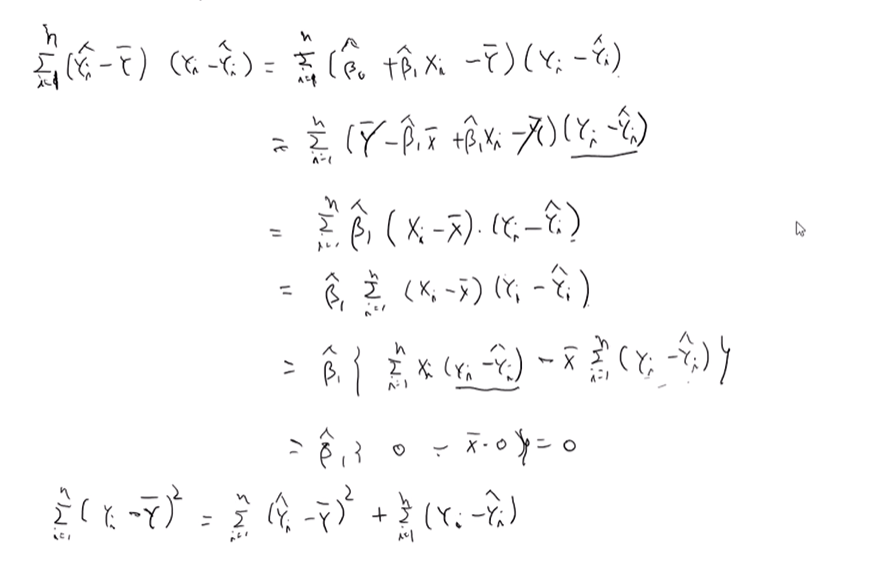 \sum_{i=1}^{n} (\hat{Y}_i - \bar{Y}) (Y_i - \hat{Y}_i) = \sum_{i=1}^{n} (\hat{\beta}_0 + \hat{\beta}_1 X_i - \bar{Y}) (Y_i - \hat{Y}_i)
= \sum_{i=1}^{n} (\bar{Y} - \hat{\beta}_1 \bar{x} + \hat{\beta}_1 X_i - \bar{Y}) (Y_i - \hat{Y}_i)
= \sum_{i=1}^{n} \hat{\beta}_1 (X_i - \bar{x}) \cdot (Y_i - \hat{Y}_i)
= \hat{\beta}_1 \sum_{i=1}^{n} (X_i - \bar{x}) (Y_i - \hat{Y}_i)
= \hat{\beta}_1 \{ \sum_{i=1}^{n} X_i (Y_i - \hat{Y}_i) - \bar{x} \sum_{i=1}^{n} (Y_i - \hat{Y}_i) \}
= \hat{\beta}_1 \{ 0 - \bar{x} \cdot 0 \} = 0
\sum_{i=1}^{n} (Y_i - \bar{Y})^2 = \sum_{i=1}^{n} (\hat{Y}_i - \bar{Y})^2 + \sum_{i=1}^{n} (Y_i - \hat{Y}_i)